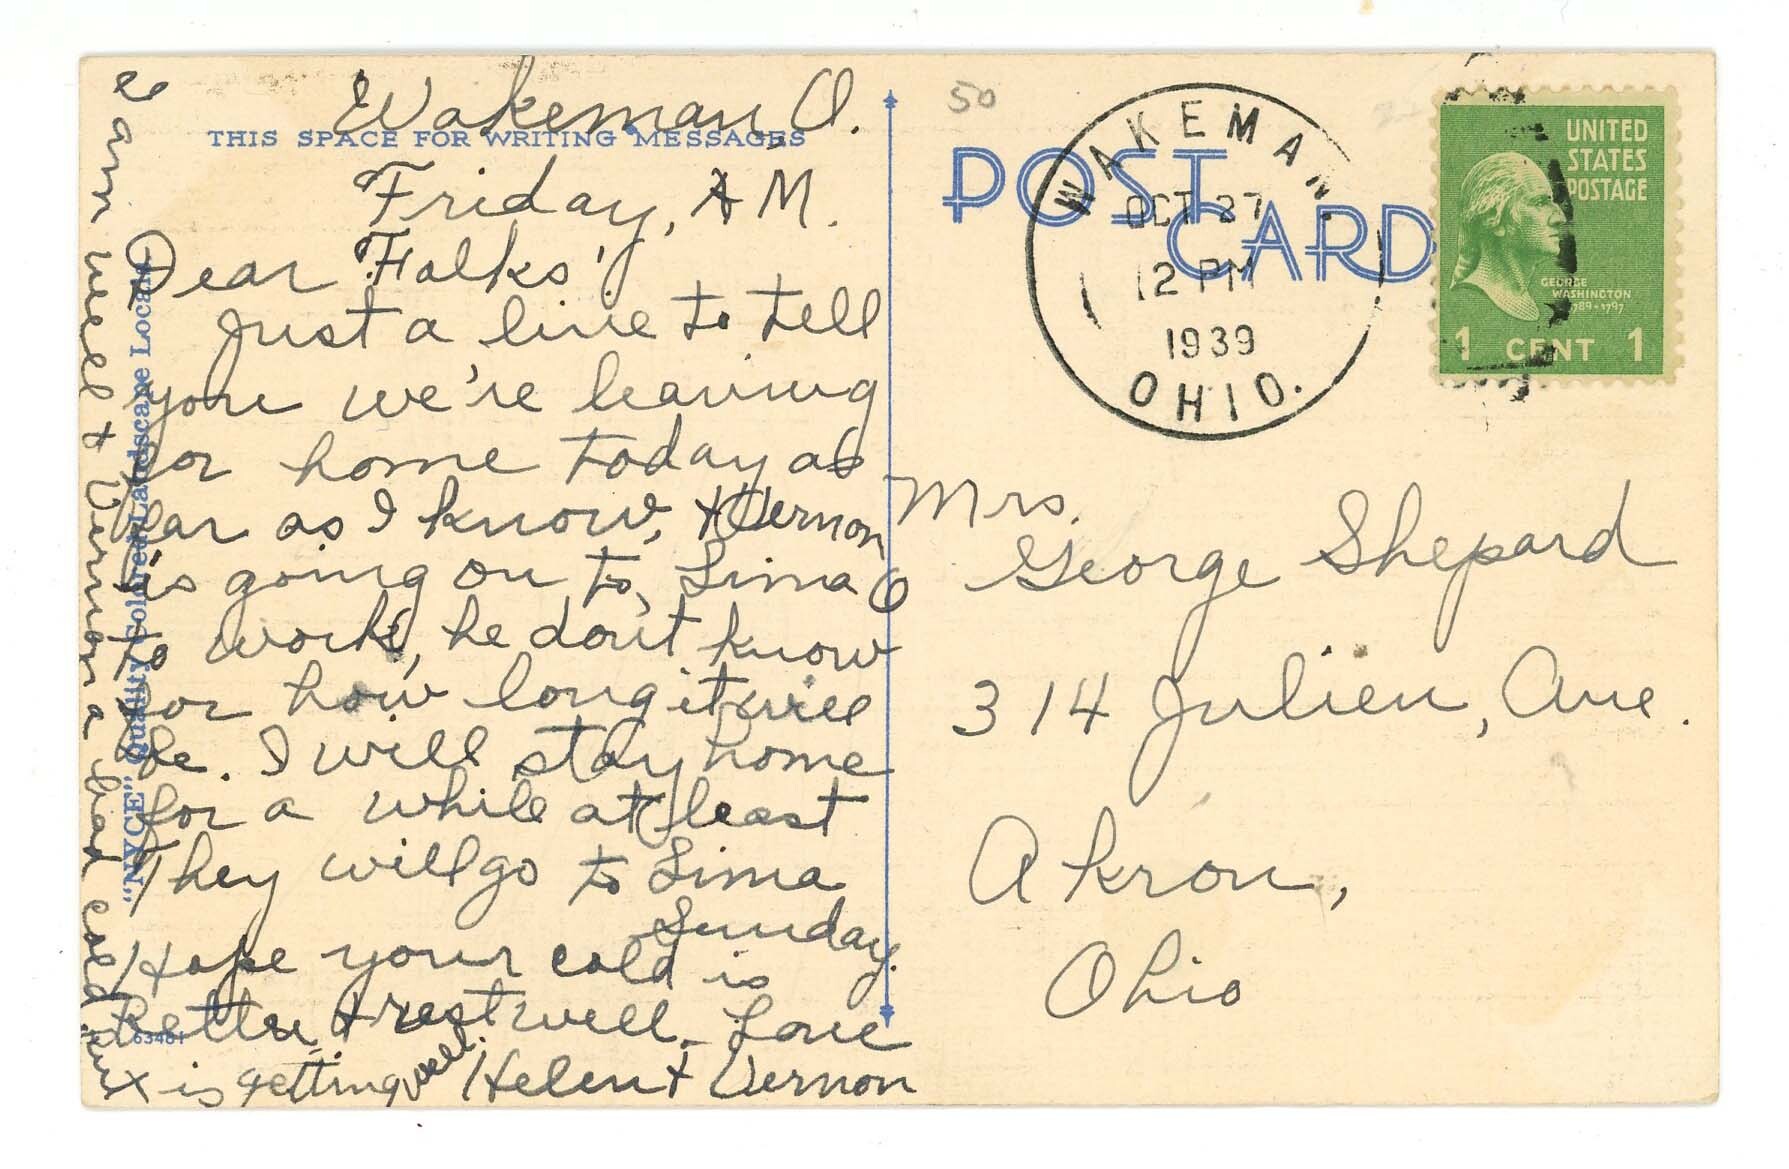 Wakeman, O.
THIS SPACE FOR WRITING MESSAGES
Friday, AM.
Dear Folks,
Just a line to tell
you we're leaving
for home today as
far as I know, + Vernon
is going on to, Lima O
to work, he don't know
for how long it will
be. I will stay home
for a while at least
They will go to Lima
Sunday.
Hope your cold is
Better + rest well. Love
Helen + Vernon
I am well + Vernon a bad cold
is getting well.
"NYCE" Quality Colored Landscape Locals
63481
50
POST
CARD
WAKEMAN.
OCT 27
12 PM
1939
OHIO.
UNITED
STATES
POSTAGE
GEORGE
WASHINGTON
1789-1797
1 CENT 1
Mrs.
George Shepard
314 Julien, Ave.
Akron,
Ohio